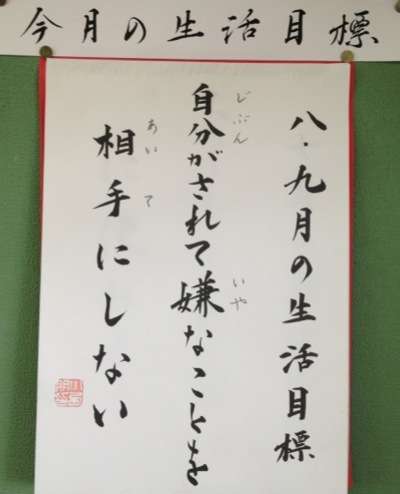 今月の生活目標
八・九月の生活目標
自分がされて嫌なことを
じぶん
いや
相手にしない
あいて